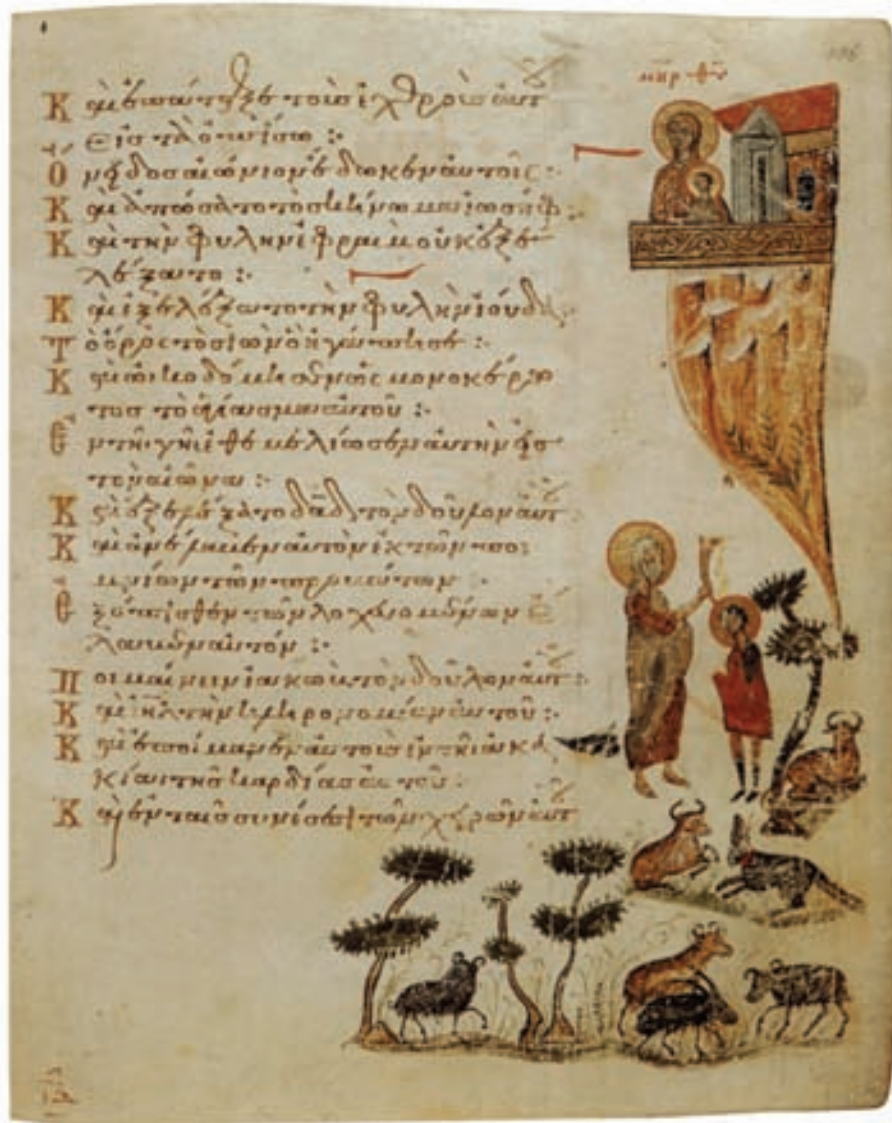 μηρ θυ
Καὶ ἐπάταξε τοὺς ἐχθροὺς αὐτ
εἰς τὰ ὀπίσω :
Ὄνειδος αἰώνιον ἔδωκεν αὐτοῖς :
Καὶ ἀπώσατο τὸ σκήνωμα ἰωσήφ :
Καὶ τὴν φυλὴν ἐφραὶμ οὐκ ἐξε
λέξατο :
Καὶ ἐξελέξατο τὴν φυλὴν ἰούδα
Τὸ ὄρος τὸ σιὼν ὃ ἠγάπησε :
Καὶ ὠικοδόμησεν ὡς μονοκέρω
τος τὸ ἁγίασμα αὐτοῦ :
Ἐν τῆι γῆι ἐθεμελίωσεν αὐτὴν εἰς
τὸν αἰῶνα :
Καὶ ἐξελέξατο δαδ τὸν δοῦλον αὐτ
Καὶ ἀνέλαβεν αὐτὸν ἐκ τῶν ποι
μνίων τῶν προβάτων
Ἐξόπισθεν τῶν λοχευομένων ἔ
λαβεν αὐτόν :
Ποιμαίνειν ἰακὼβ τὸν δοῦλον αὐτ :
Καὶ ιηλ τὴν κληρονομίαν αὐτοῦ :
Καὶ ἐποίμανεν αὐτοὺς ἐν τῆι ἀκα
κίαι τῆς καρδίας αὐτοῦ :
Καὶ ἐν ταῖς συνέσεσι τῶν χειρῶν αὐτ